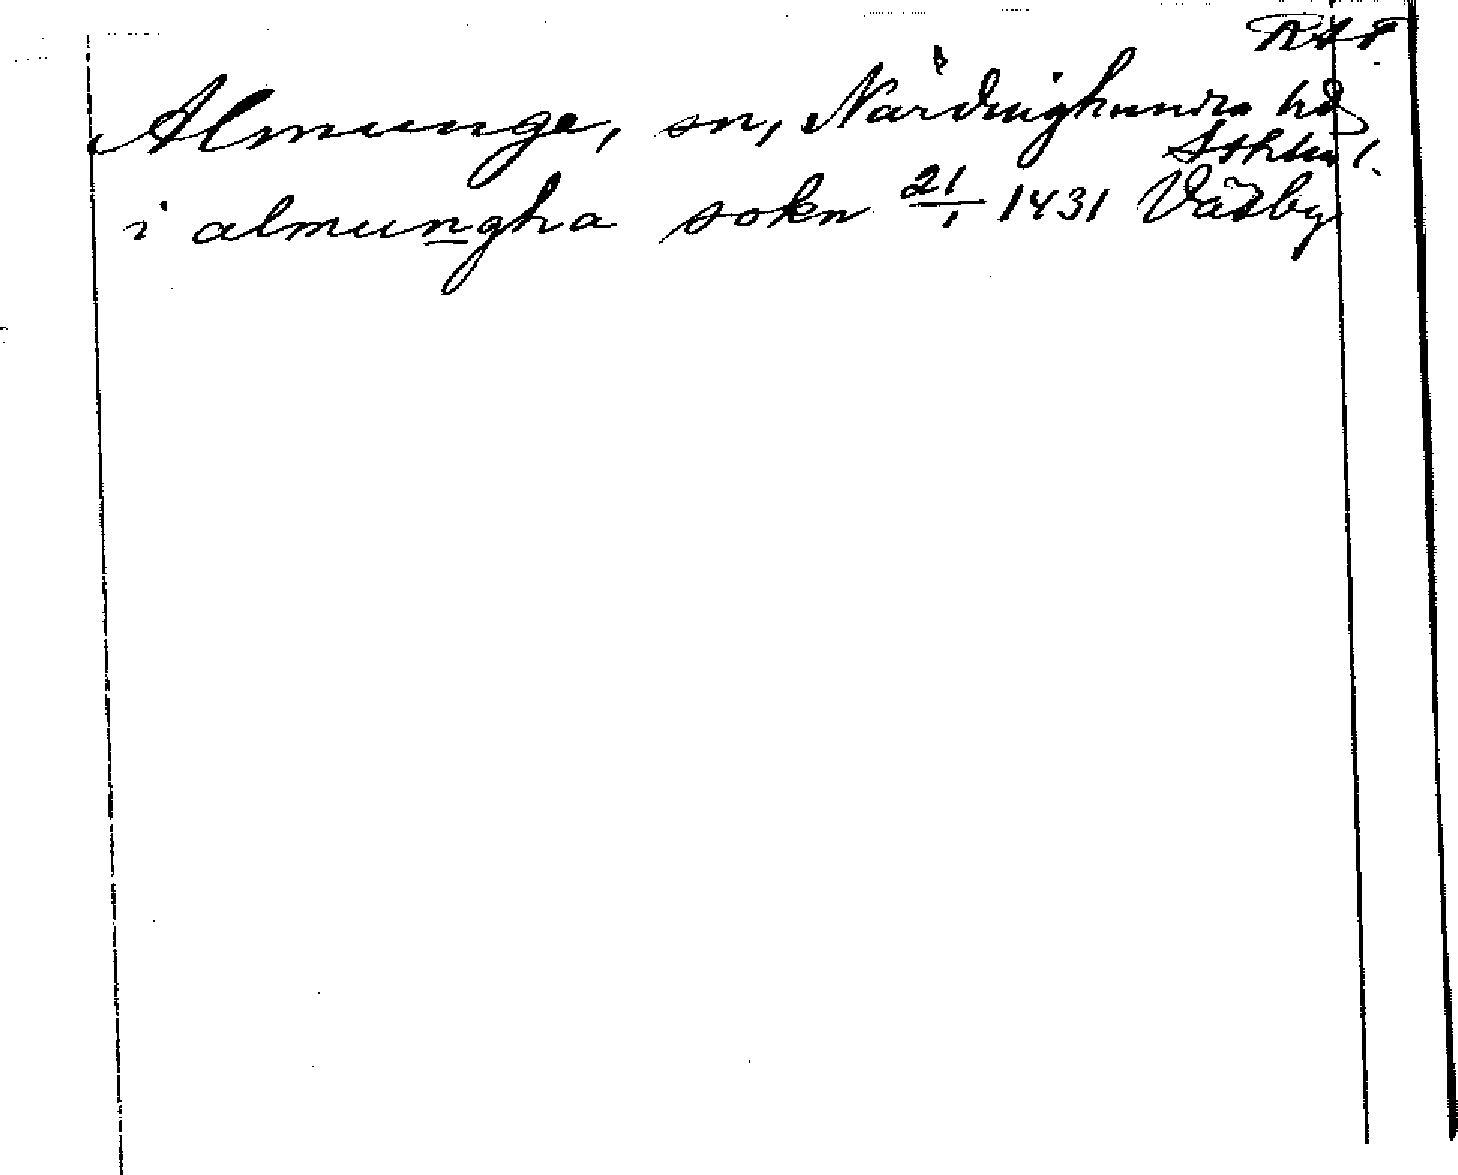 RAP
Almunge, sn, Närdinghundra hd
Sthlms l.
i almungha sokn 21/1 1431 Väsby